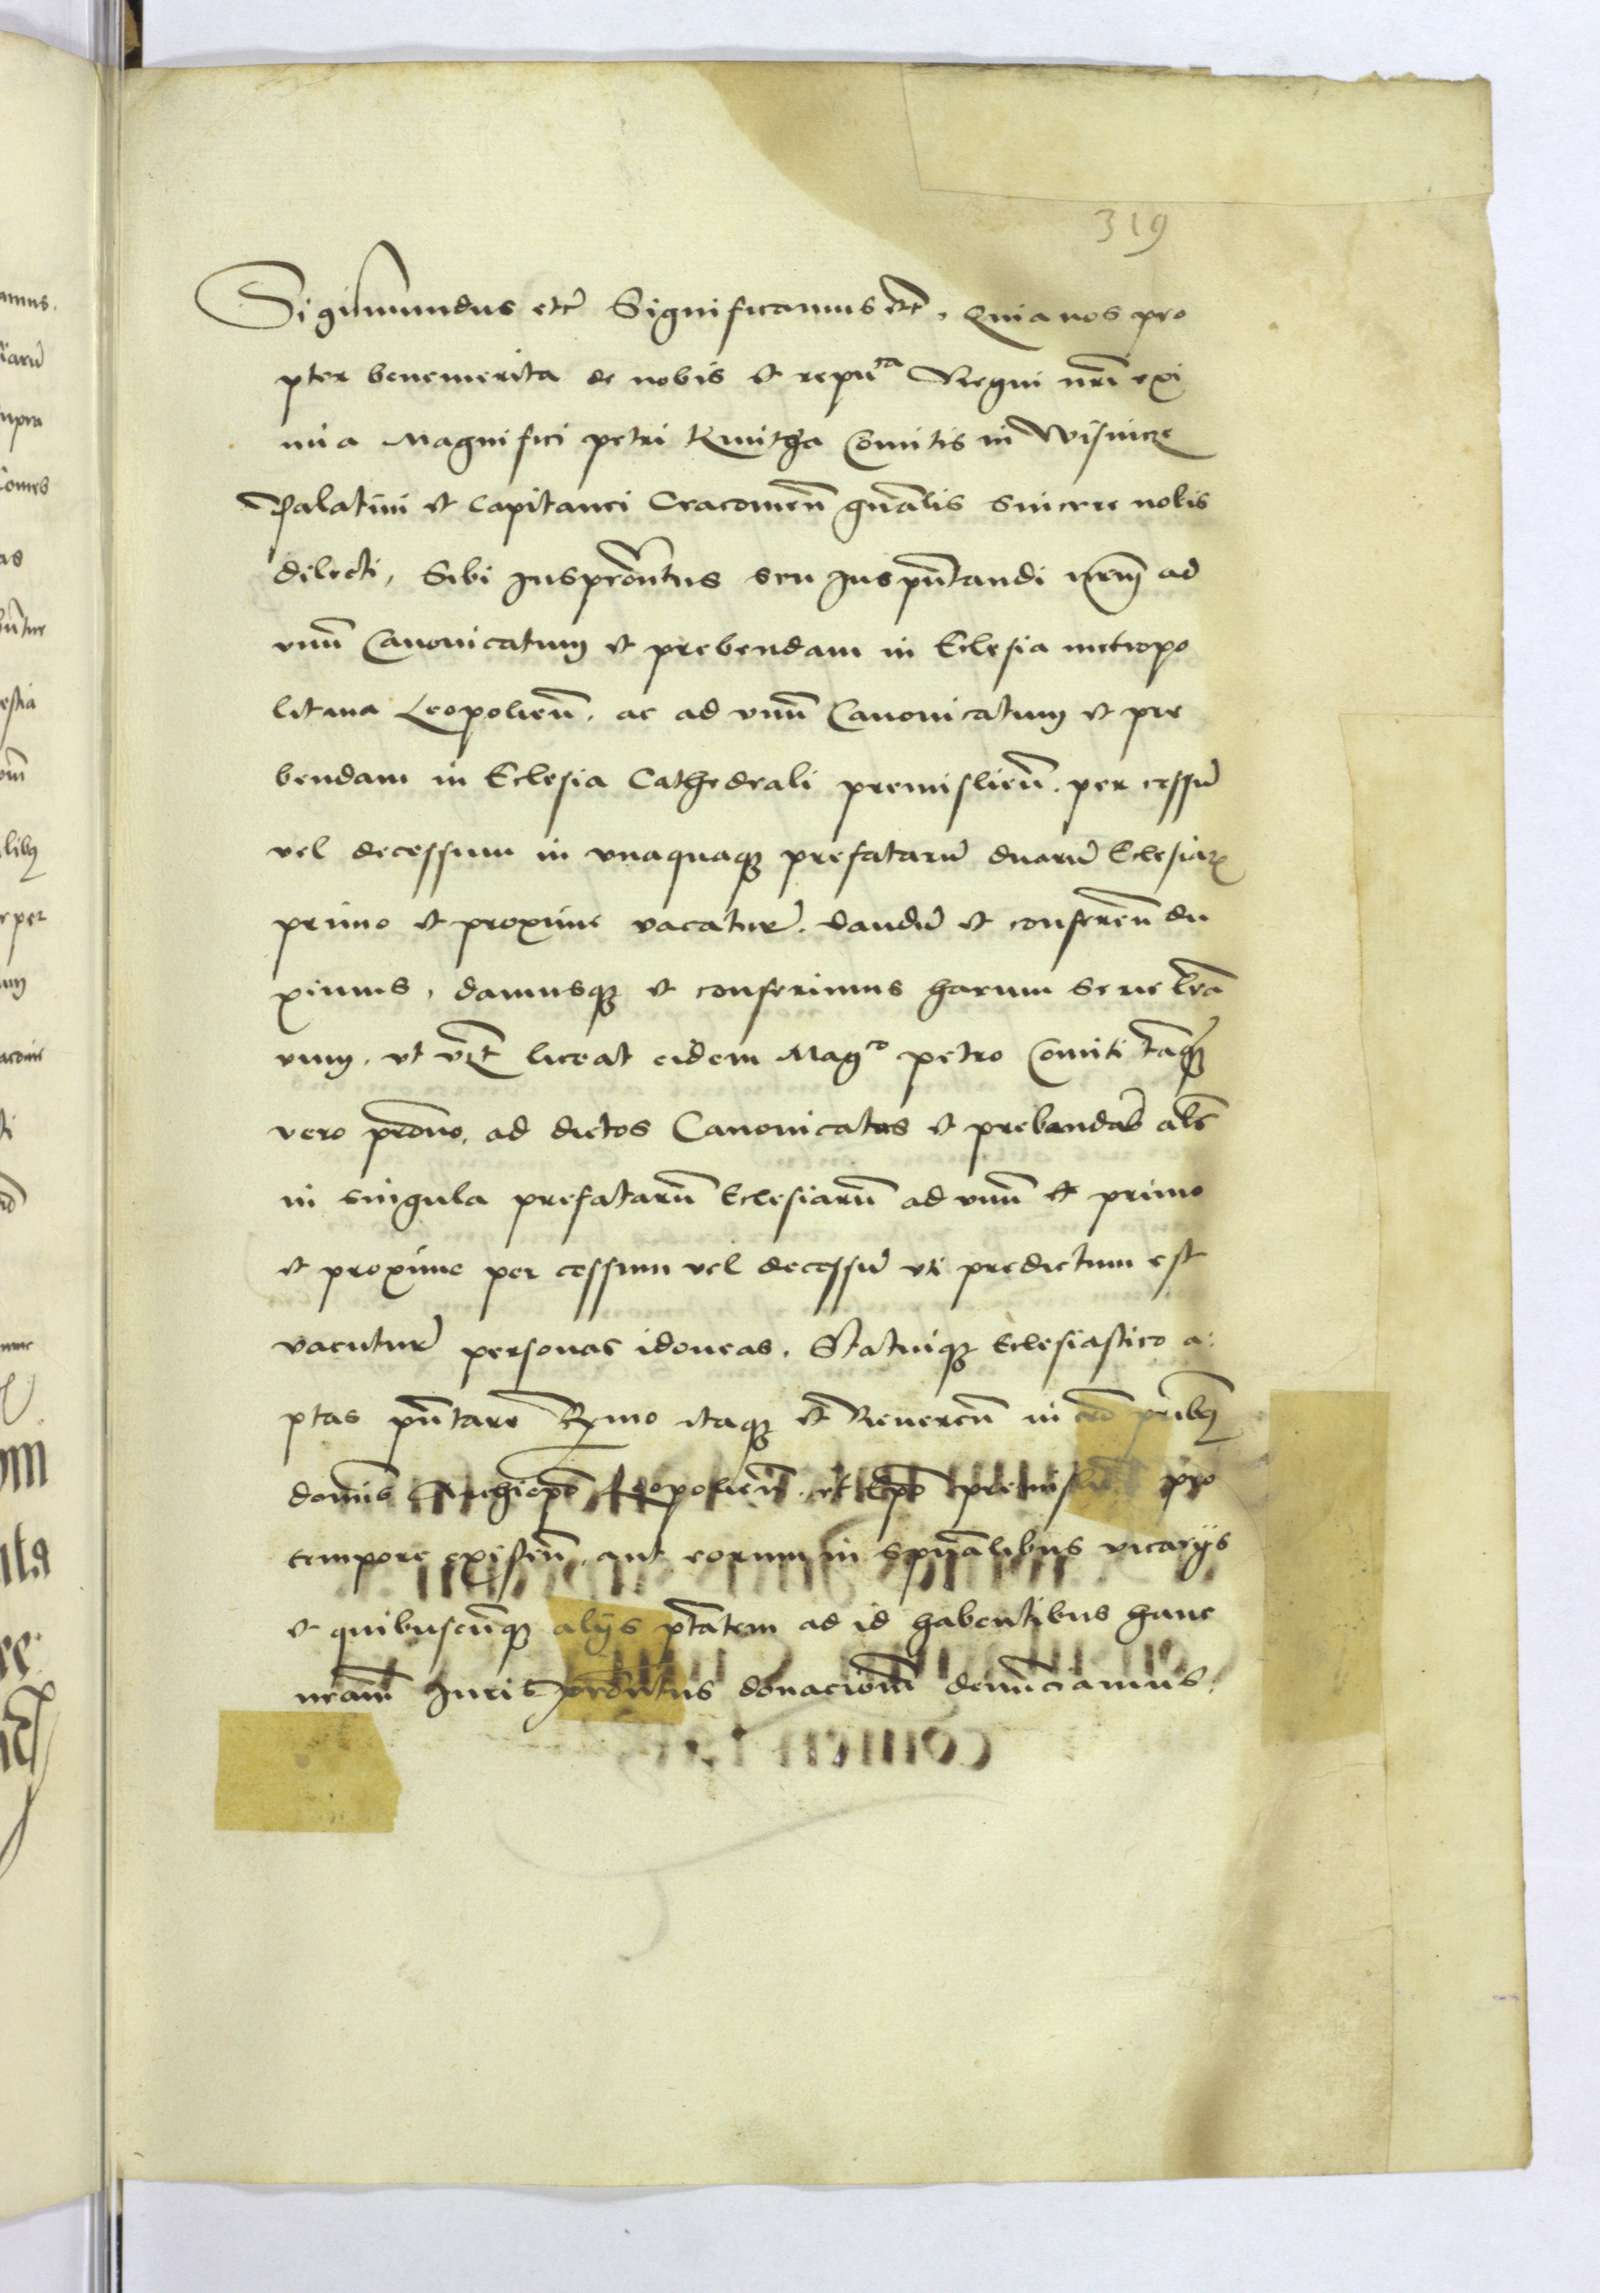 319
Sigimundus etc̃ Significamus etc̃, Quia nos pro
pter benemerita de nobis et repu᷒ca Regni nr̃i exi
mia Magnifici petri Kmitha Comitis in Wisnicze
Palatini et Capitanei Cracovien̄ gn̄alis Sincere nobis
dilecti, Sibi Juspr̄onatus seu Jus pn̄tandi nr̄m ad
vnū Canonicatum et prebendam in Eclesia metropo
litana Leopolien̄. ac ad vnū Canonicatum et pre
bendam in Eclesia Cathedrali premislien̄. per cessū
vel decessum in vnaquaqꝫ prefatarū duarū Eclesiaꝝ
primo et proxime vacatur̄. dandū et conferen̄ du
ximus, damusqꝫ et conferimus harum serie lr̄a
rum. vt
liceat eidem Mag᷒co petro Comiti tanqꝫ
vero pr̄ono, ad dictos Canonicatus et prebendas als̄
in singula prefatarū Eclesiarū ad vnū et primo
et proxime per cessum vel decessū vti predictum est
vacatur̄ personas idoneas. Statuiqꝫ Eclesiastico a:
ptas pn̄tare Rx̄mo itaqꝫ et Reveren̄ in cr̄o pr̄ibꝫ
domīs Archiep̄o Leopolien̄. et Ep̄o premislien̄ pro
tempore existen̄. aut eorum in sp̄ualibus vicarijs
et quibuscūqꝫ alijs pt̄atem ad id habentibus hanc
nr̄am Juris pr̄onatus donacionē denuncciamus.